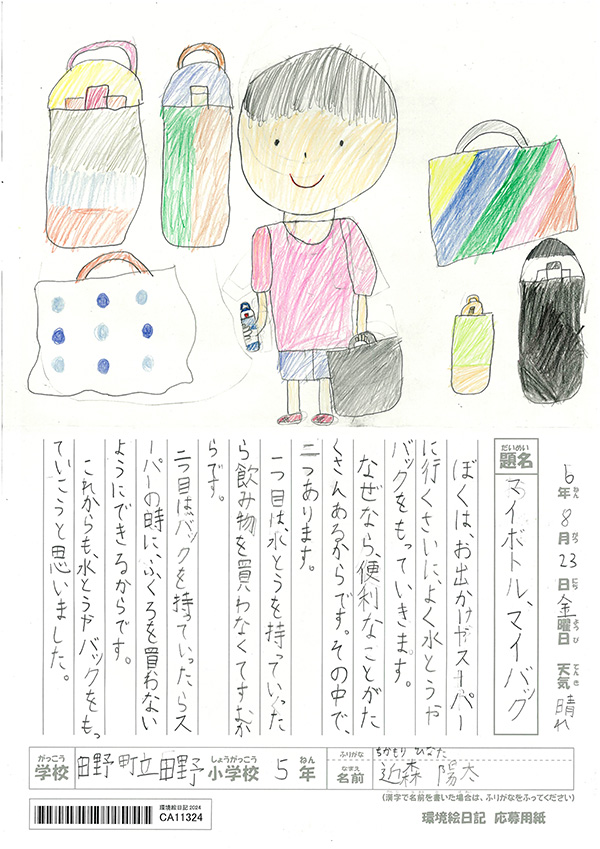 6年8月23日金曜日 天気 晴れ
題名 マイボトル、マイバッグ
ぼくは、お出かけやスーパー
に行くさいに、よく水とうや
バックをもっていきます。
なぜなら、便利なことがた
くさんあるからです。その中で、
二つあります。
一つ目は、水とうを持っていった
ら飲み物を買わなくてすむか
らです。
二つ目はバックを持っていったらス
ーパーの時に、ふくろを買わない
ようにできるからです。
これからも、水とうやバックをもっ
ていこうと思いました。
学校 田野町立田野小学校 5年
ふりがな ちかもり ひなた
名前 近森 陽太
(漢字で名前を書いた場合は、ふりがなをふってください)
環境絵日記 2024
CA11324
環境絵日記 応募用紙